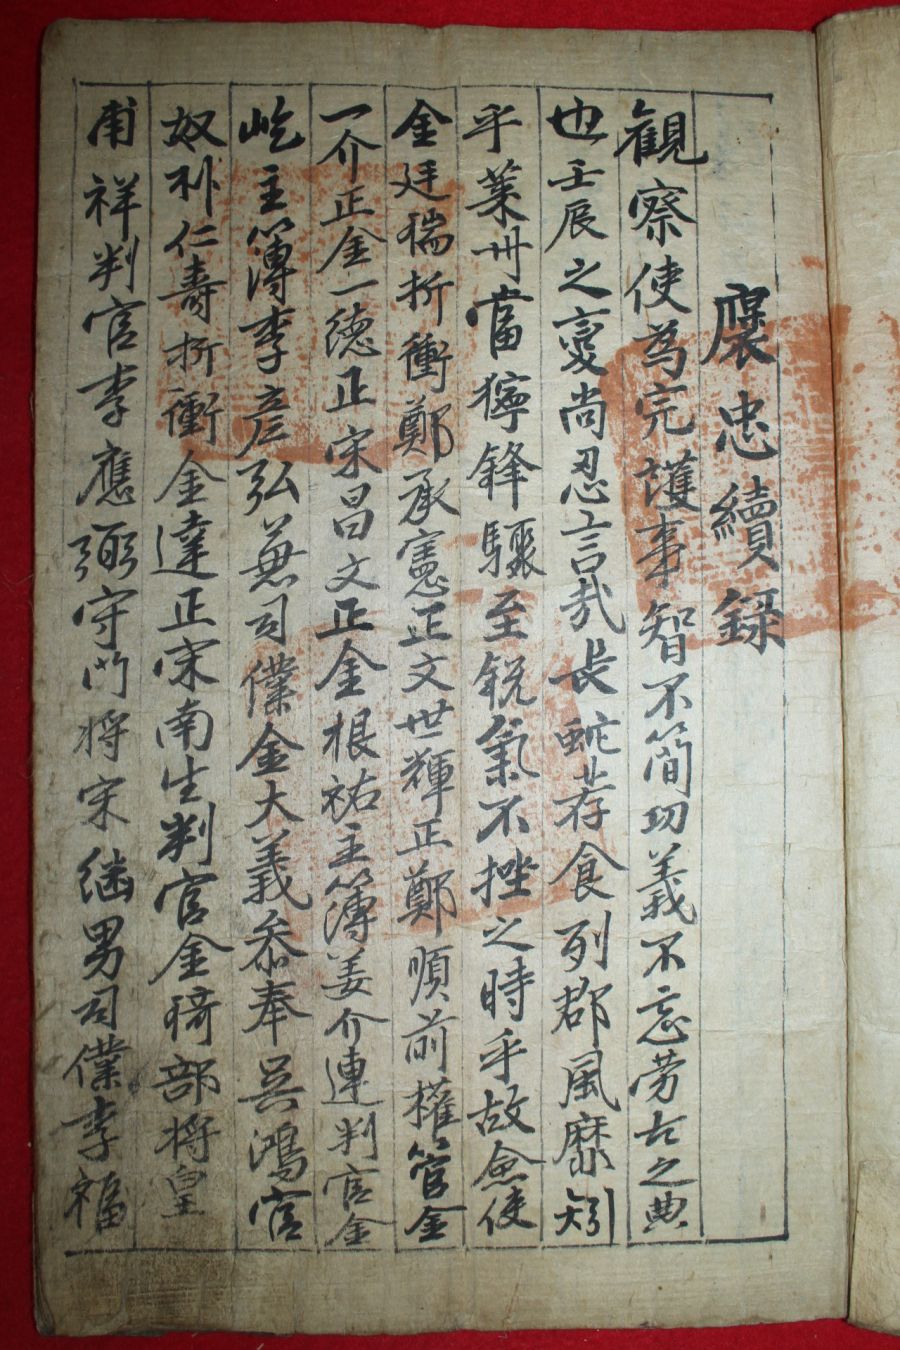 褒忠續錄
觀察使爲完護事智不簡功義不忘勞古之典
也壬辰之變尚忍言哉長蛇荐食列郡風靡矧
乎萊州當獰鋒驟至銳氣不挫之時乎故僉使
金廷瑞折衝鄭承憲正文世輝正鄭順前權管金
一介正金一德正宋昌文正金根祐主簿姜介連判官金
屹主簿李彦弘兼司僕金大義叅奉吳鴻官
奴朴仁壽折衝金達正宋南生判官金琦部將皇
甫祥判官李應弼守門將宋継男司僕李福